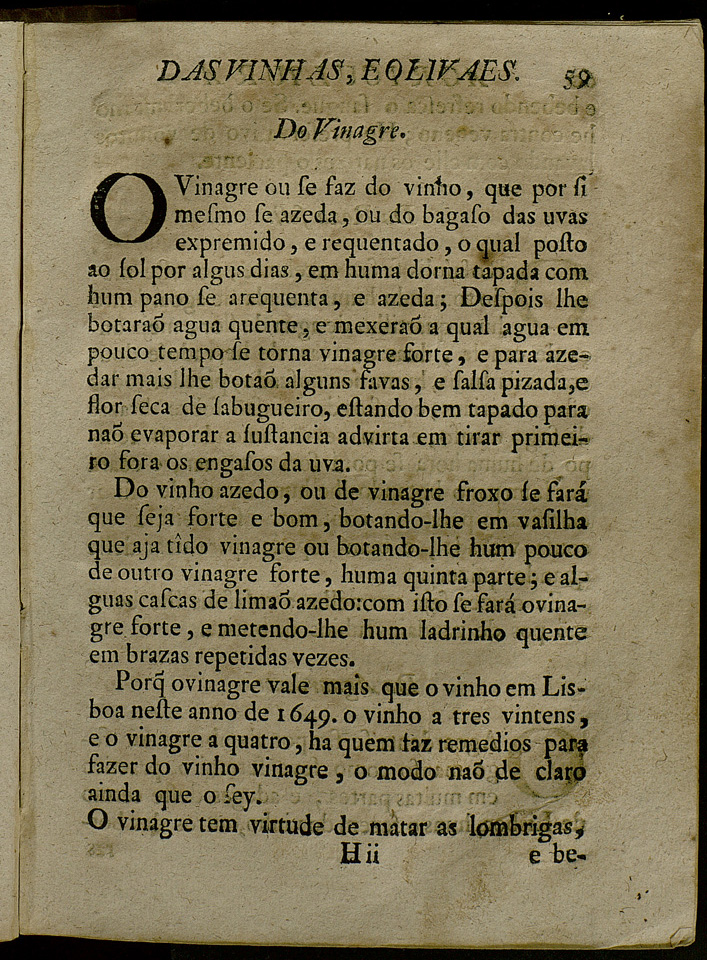 DAS VINHAS, E OLIVAES. 59
Do Vinagre.
O Vinagre ou ſe faz do vinho, que por ſi
meſmo ſe azeda, ou do bagaſo das uvas
expremido, e requentado, o qual poſto
ao ſol por algus dias, em huma dorna tapada com
hum pano ſe arequenta, e azeda; Deſpois lhe
botaraõ agua quente, e mexeraõ a qual agua em
pouco tempo ſe torna vinagre forte, e para aze-
dar mais lhe botaõ alguns favas, e ſalſa pizada, e
flor ſeca de ſabugueiro, eſtando bem tapado para
naõ evaporar a ſuſtancia advirta em tirar primei-
ro fora os engaſos da uva.
Do vinho azedo, ou de vinagre froxo ſe fará
que ſeja forte e bom, botando-lhe em vaſilha
que aja tîdo vinagre ou botando-lhe hum pouco
de outro vinagre forte, huma quinta parte; e al-
guas caſcas de limaõ azedo: com iſto ſe fará ovina-
gre forte, e metendo-lhe hum ladrinho quente
em brazas repetidas vezes.
Porq̃ ovinagre vale mais que o vinho em Lis-
boa neſte anno de 1649. o vinho a tres vintens,
e o vinagre a quatro, ha quem faz remedios para
fazer do vinho vinagre, o modo naõ de claro
ainda que o ſey.
O vinagre tem virtude de matar as lombrigas,
H ii e be-